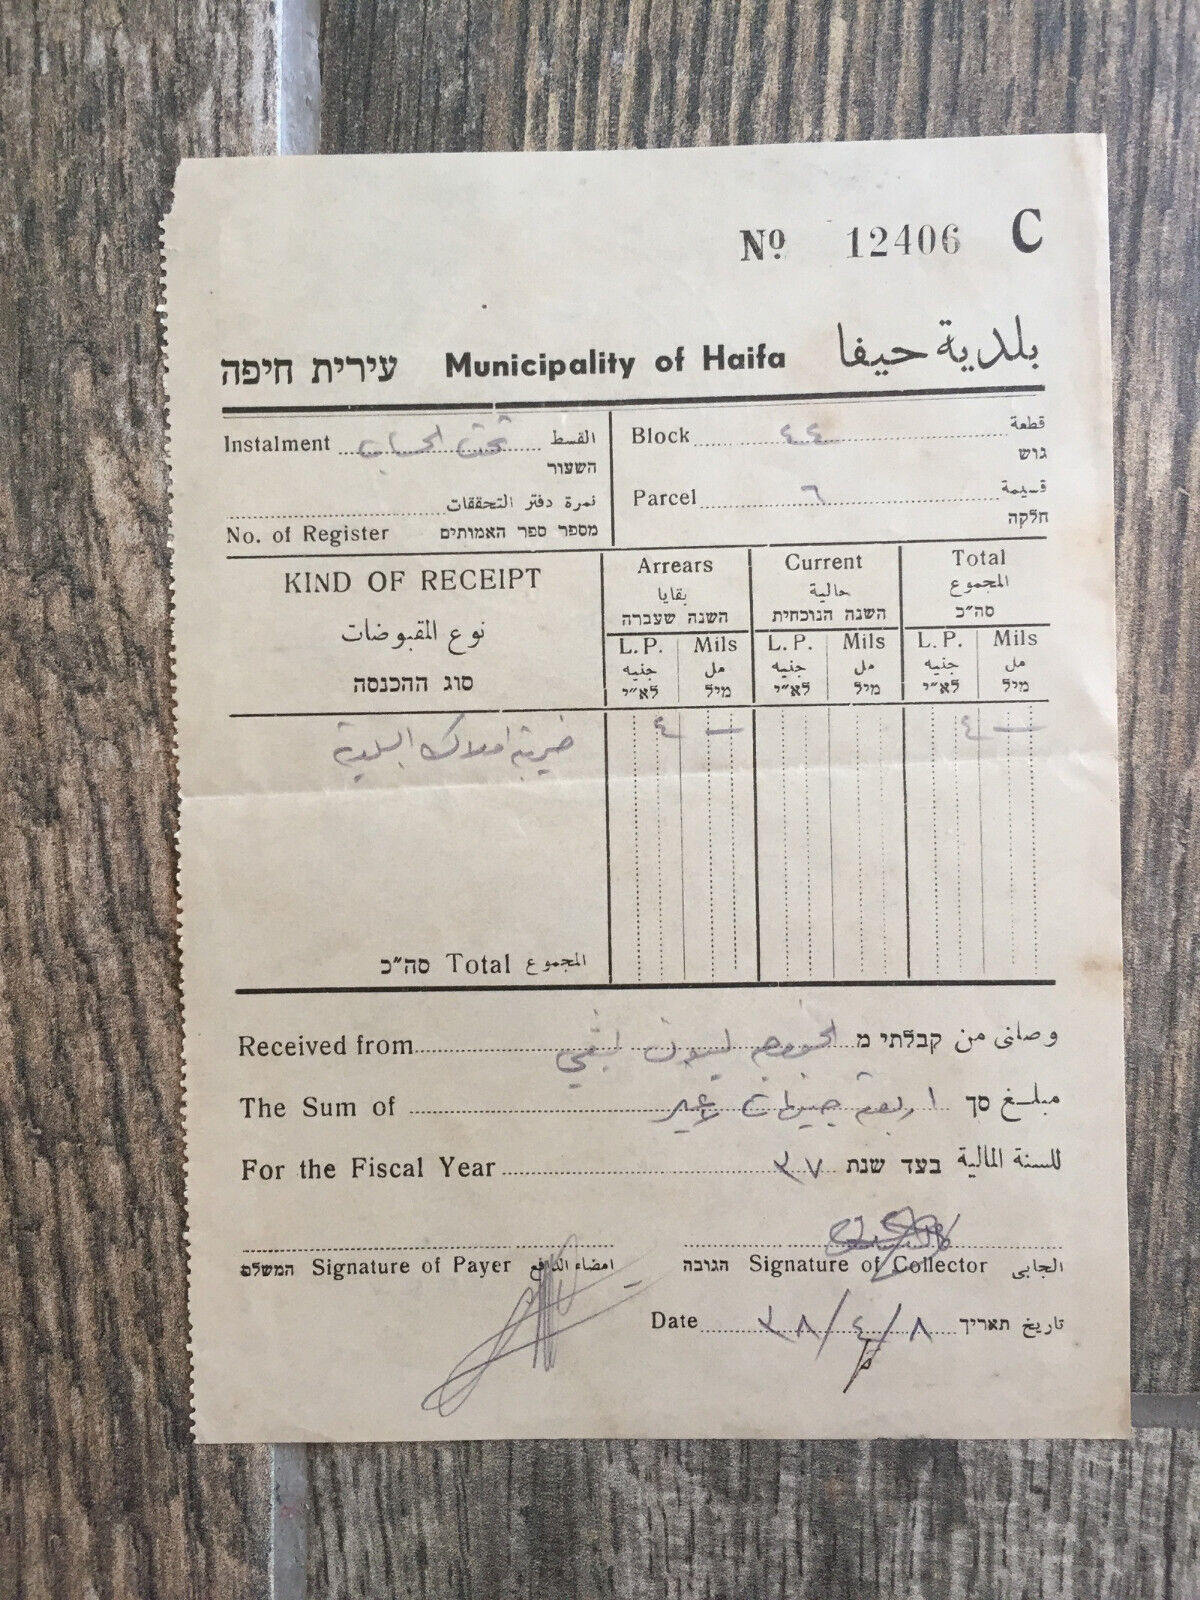 Nº 12406 C
עירית חיפה Municipality of Haifa بلدية حيفا
Instalment تحت الحساب القسط
השעור
نمرة دفتر التحققات
No. of Register מספר ספר האמותים
Block ٤٤ قطعة
גוש
Parcel ٦ قسيمة
חלקה
KIND OF RECEIPT
نوع المقبوضات
סוג ההכנסה
Arrears Current Total
بقايا حالية المجموع
השנה שעברה השנה הנוכחית סה"כ
L.P. Mils L.P. Mils L.P. Mils
جنيه مل جنيه مل جنيه مل
לא"י מיל לא"י מיל לא"י מיל
ضريبة املاك البلدية ٤ — ٤ —
סה"כ Total المجموع
Received from الخواجه ליקבלתי מ وصلنى من
The Sum of اربعة جنيهات لاغير סך مبلغ
For the Fiscal Year ٣٧ בעד שנת للسنة المالية
המשלם Signature of Payer امضاء الدافع
הגובה Signature of Collector الجابى
Date ٣٨/٤/٨ תאריך تاريخ